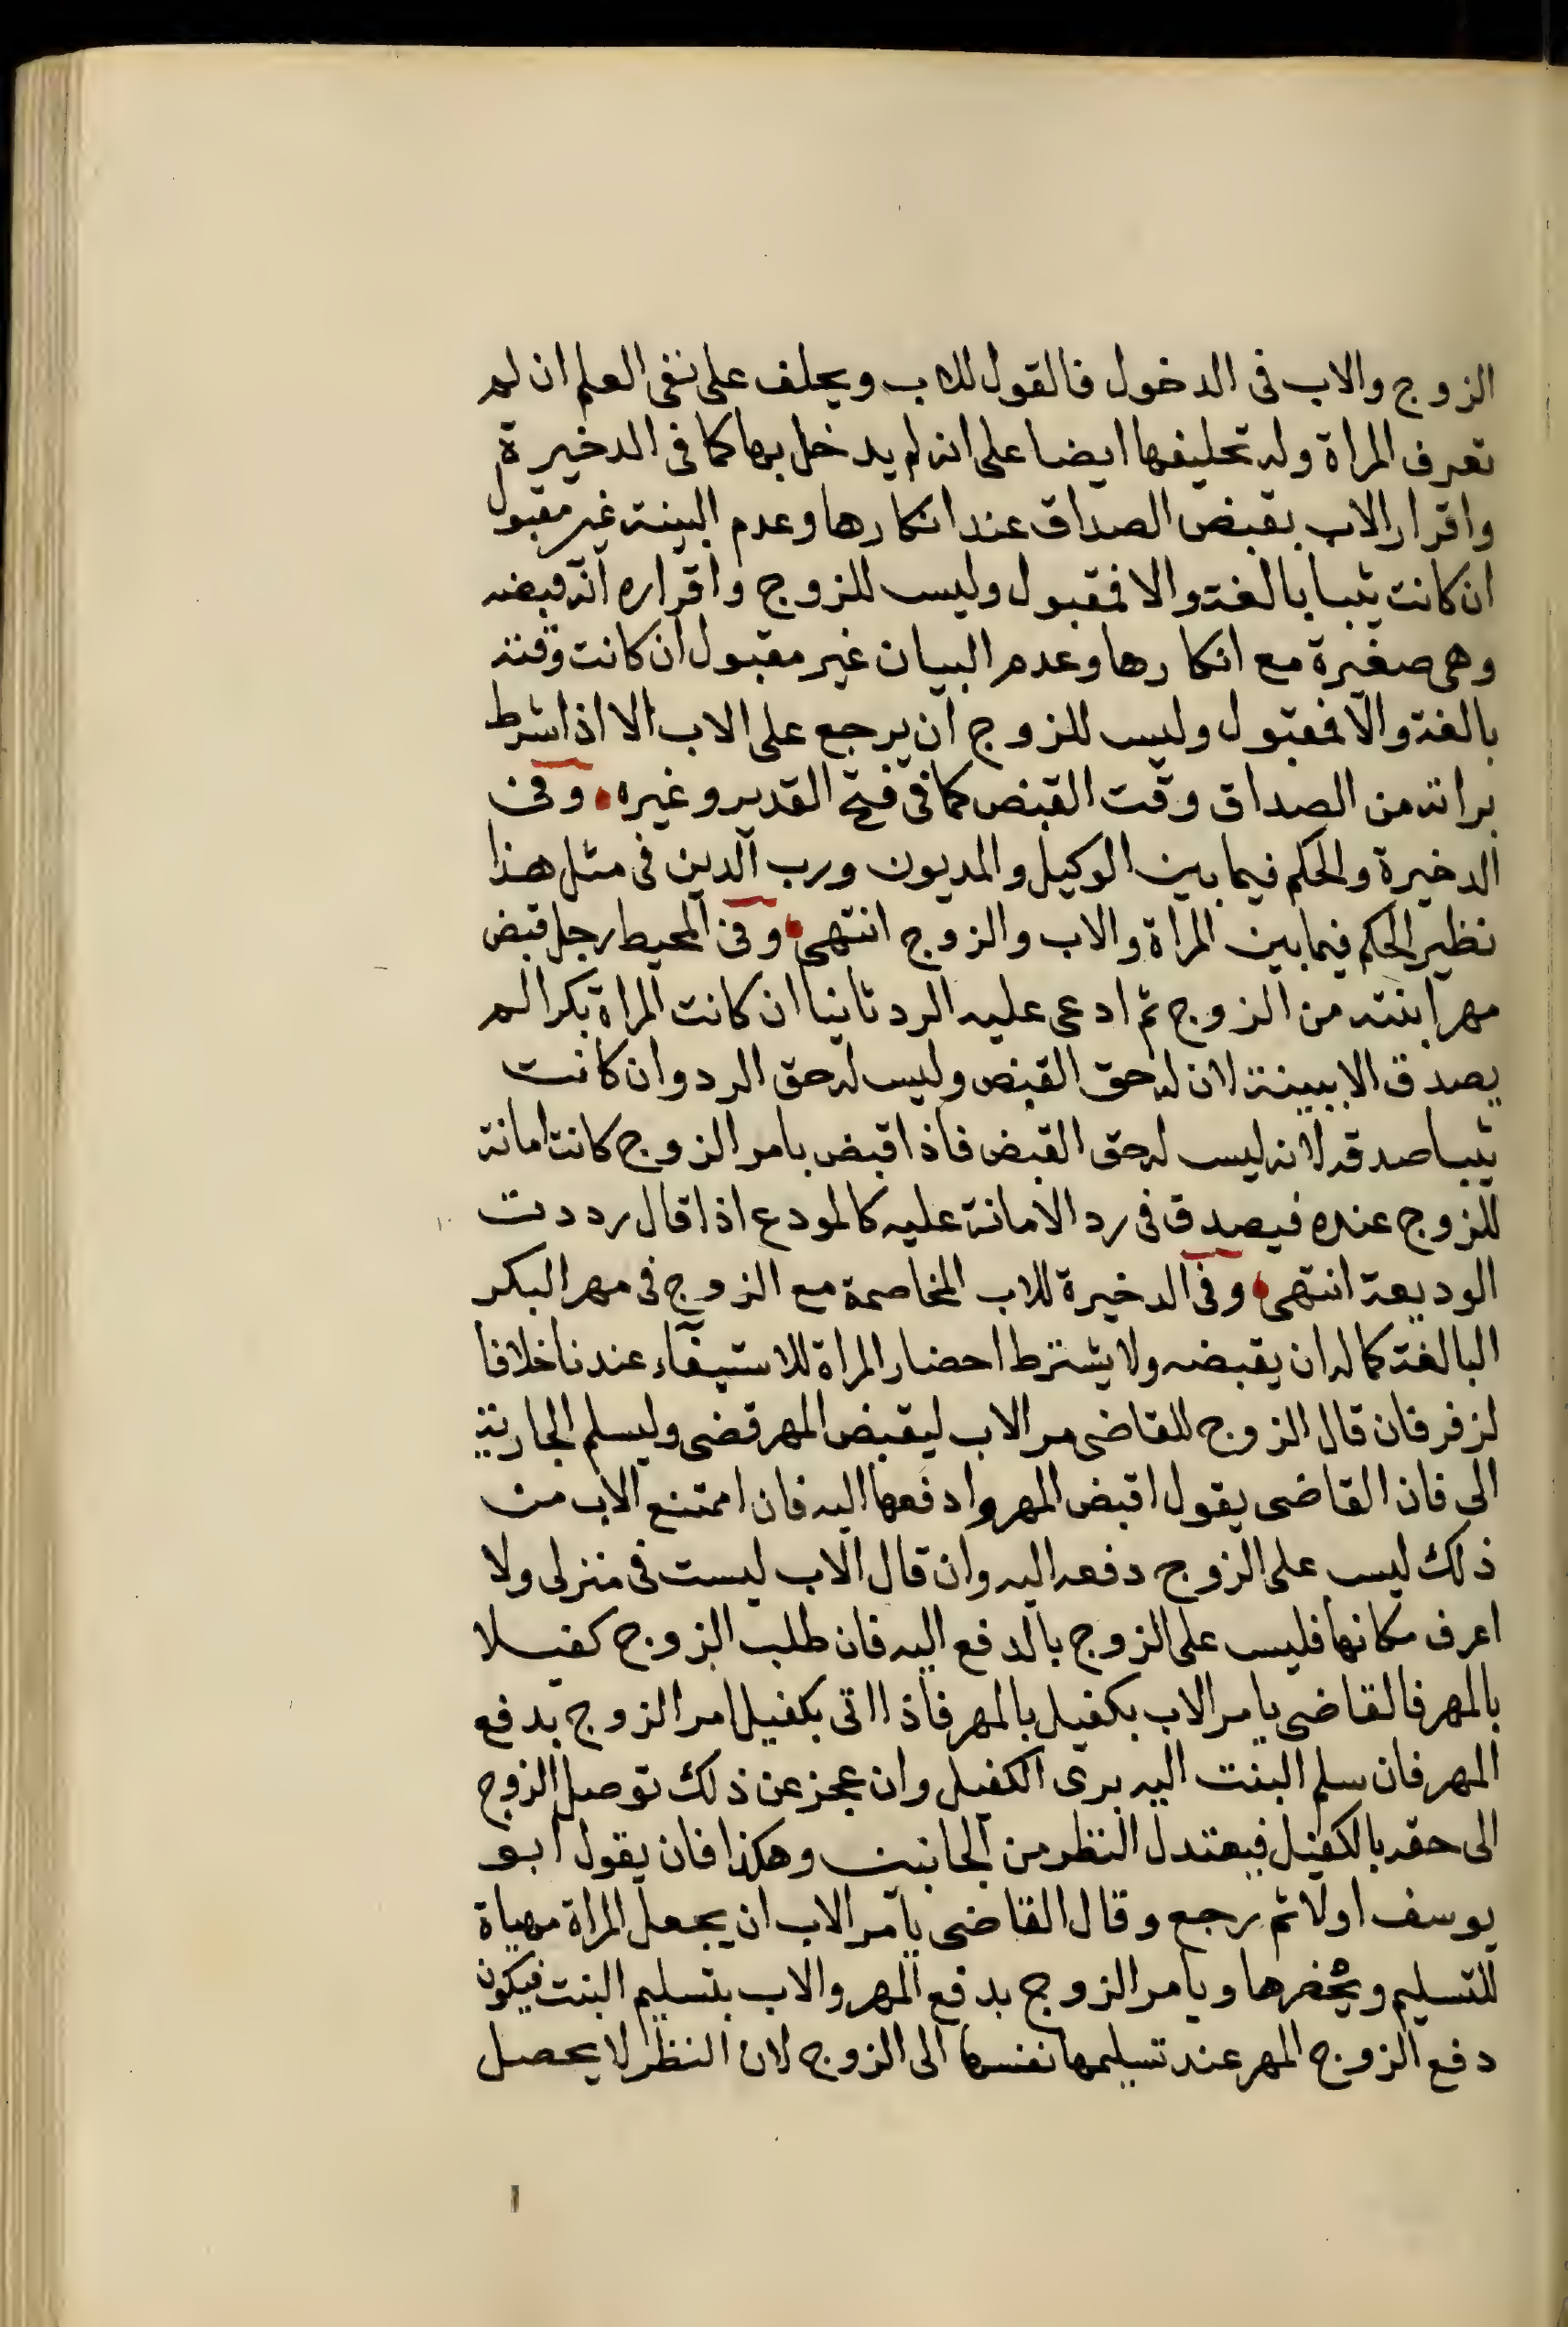 الزوج والاب فى الدخول فالقول للاب ويحلف على نفى العلم ان لم
تعرف المراة وله تحليفها ايضا على انه لم يدخل بها كما فى الدخيرة
واقرار الاب بقبض الصداق عند انكارها وعدم البينة غير مقبول
ان كانت ثيبا بالغة والا فمقبول وليس للزوج واقراره انه قبضه
وهى صغيرة مع انكارها وعدم البيان غير مقبول ان كانت وقته
بالغة والا فمقبول وليس للزوج ان يرجع على الاب الا اذا شرط
براته من الصداق وقت القبض كما فى فتح القدير وغيره وفى
الدخيرة والحكم فيما بين الوكيل والمديون ورب الدين فى مثل هذا
نظير الحكم فيما بين المراة والاب والزوج انتهى وفى المحيط رجل قبض
مهر ابنته من الزوج ثم ادعى عليه الرد ثانيا ان كانت المراة بكرا لم
يصدق الا ببينة لان له حق القبض وليس له حق الرد وان كانت
ثيبا صدق لانه ليس له حق القبض فاذا قبض بامر الزوج كانت امانة
للزوج عنده فيصدق فى رد الامانة عليه كالمودع اذا قال رددت
الوديعة انتهى وفى الدخيرة للاب المخاصمة مع الزوج فى مهر البكر
البالغة كما له ان يقبضه ولا يشترط احضار المراة للاستيفآء عندنا خلافا
لزفر فان قال الزوج للقاضى مر الاب ليقبض المهر قضى وليسلم الجارية
الى فان القاضى يقول اقبض المهر وادفعها اليه فان امتنع الاب من
ذلك ليس على الزوج دفعه اليه وان قال الاب ليست فى منزلى ولا
اعرف مكانها فليس على الزوج بالدفع اليه فان طلب الزوج كفيلا
بالمهر فالقاضى يامر الاب بكفيل بالمهر فاذا اتى بكفيل امر الزوج بدفع
المهر فان سلم البنت اليه برى الكفيل وان عجز عن ذلك توصل الزوج
الى حقه بالكفيل فيعتدل النظر من الجانبين وهكذا فان يقول ابو
يوسف اولا ثم رجع وقال القاضى يامر الاب ان يجعل المراة مهياة
للتسليم ويحضرها ويامر الزوج بدفع المهر والاب بتسليم البنت فيكون
دفع الزوج المهر عند تسليمها نفسها الى الزوج لان النظر لا يحصل